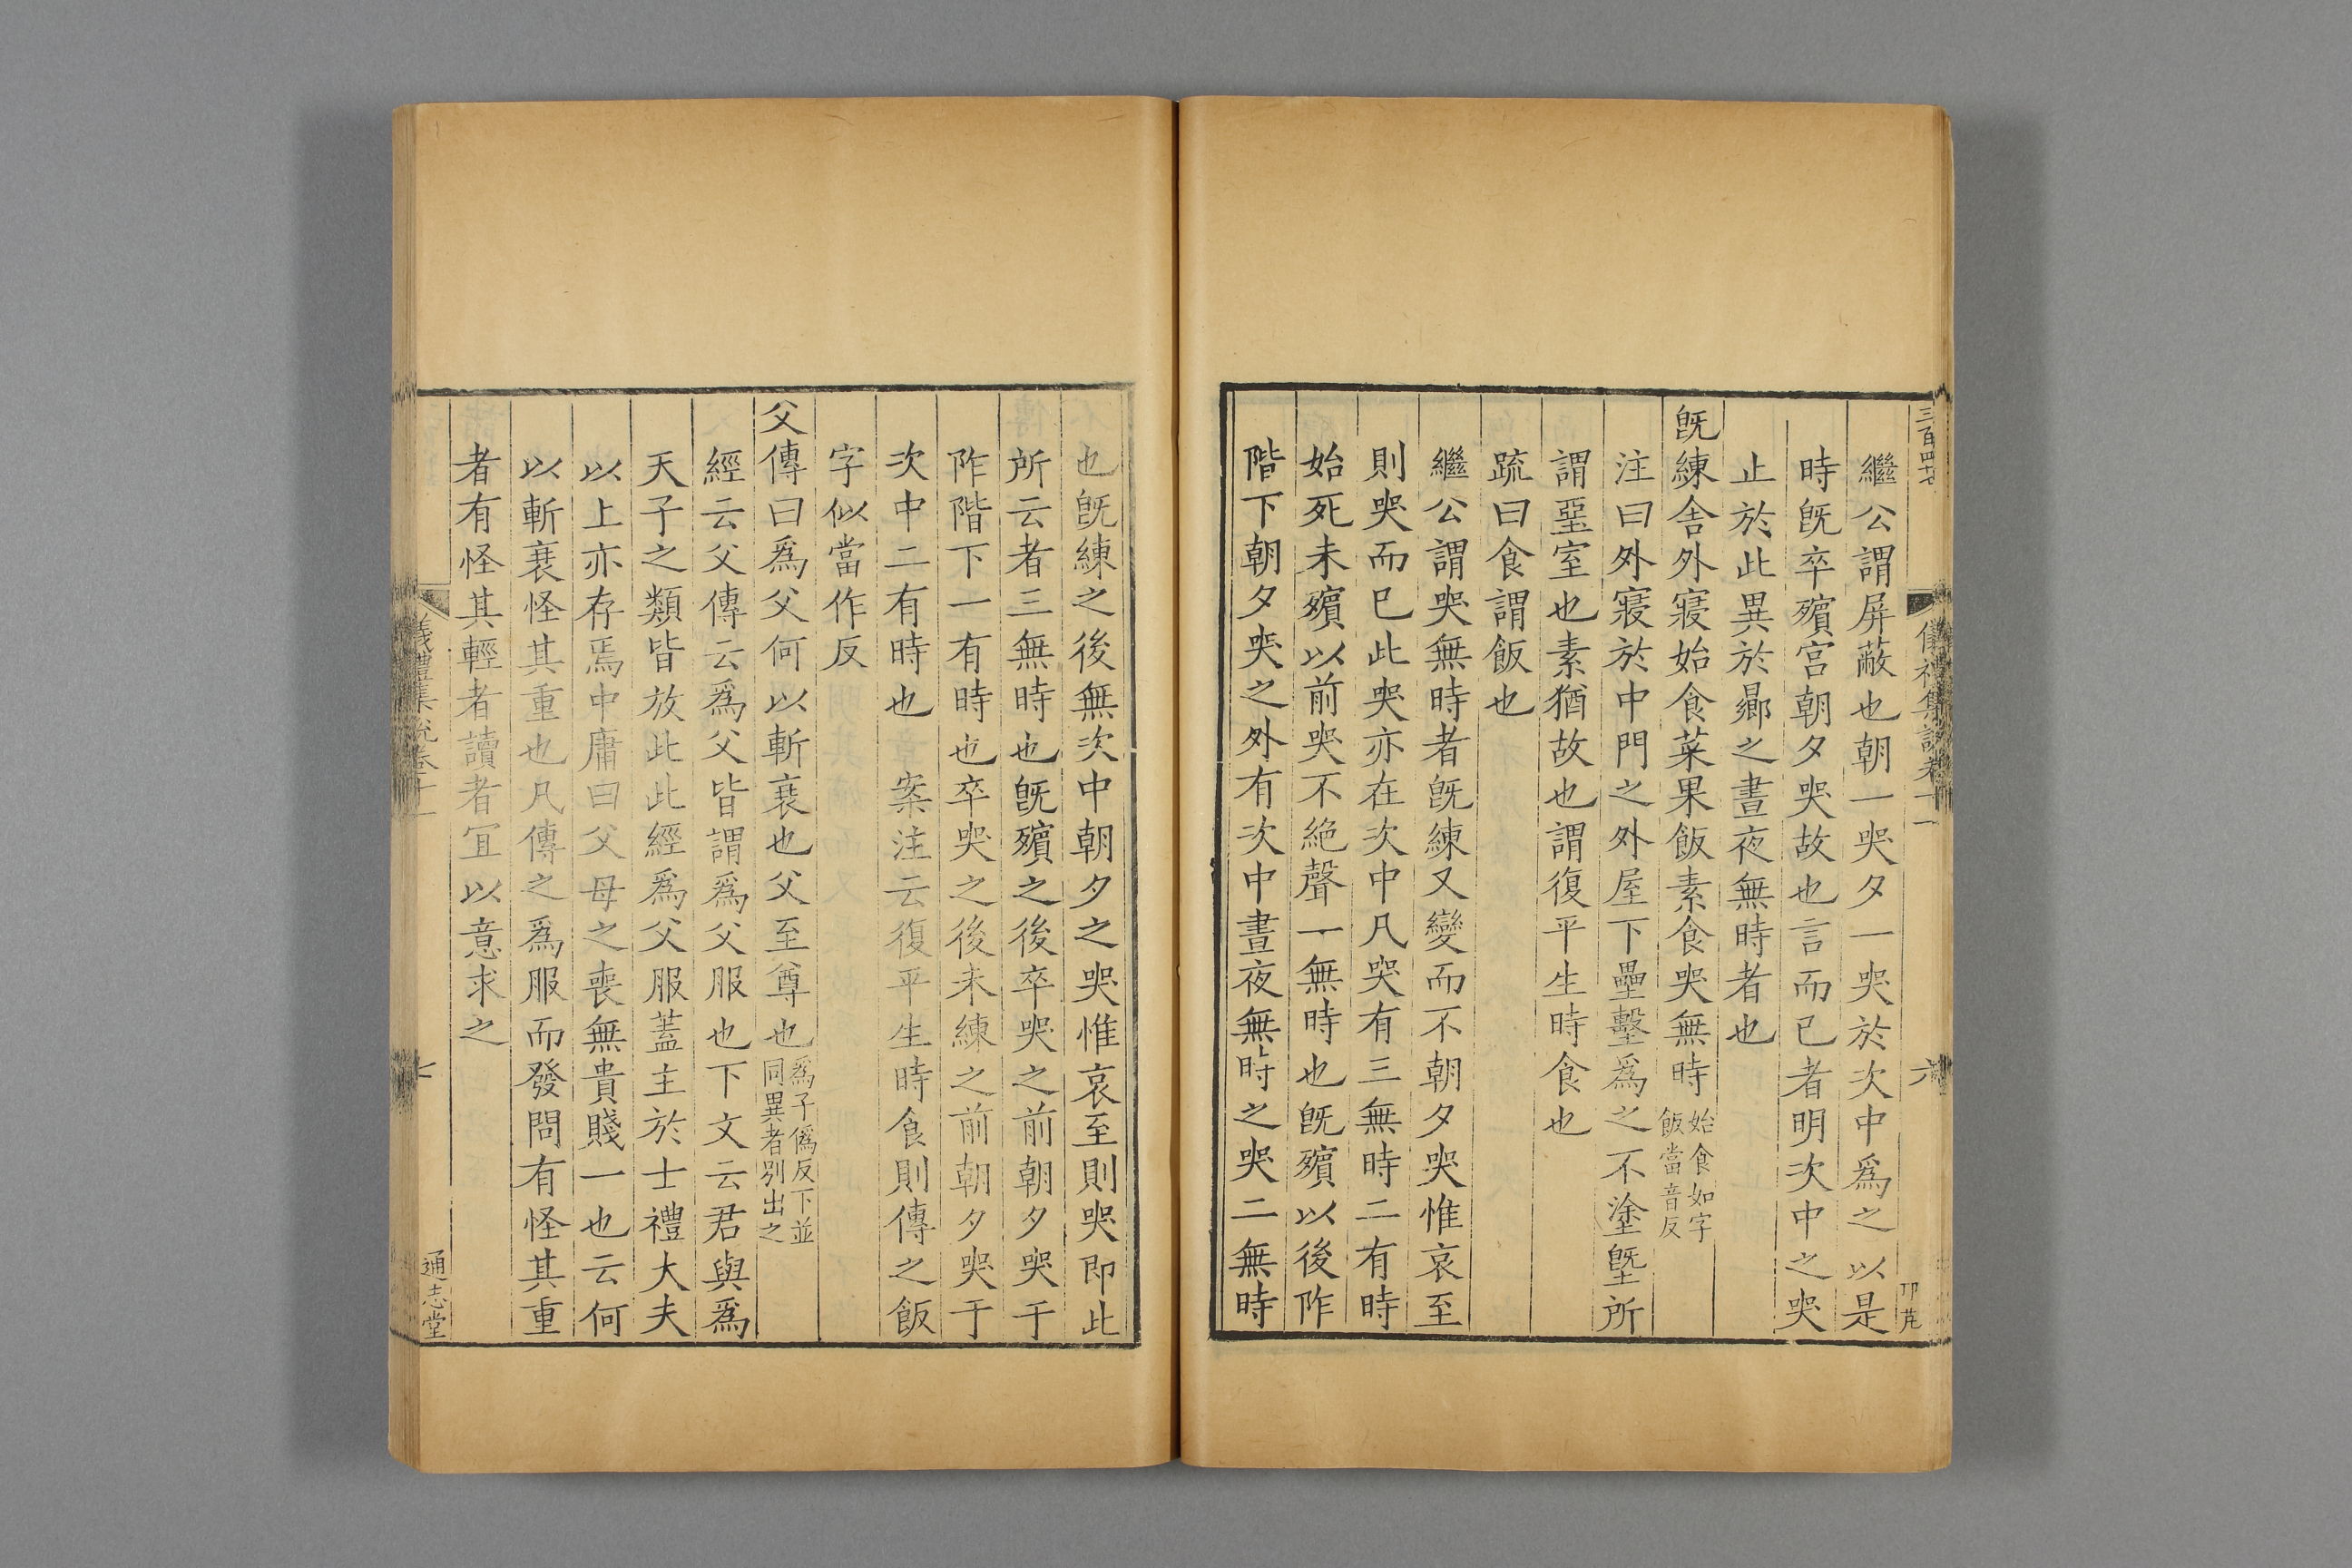 三百四十七
儀禮集說卷十一
六
卭芃
繼公謂屏蔽也朝一哭夕一哭於次中爲之以是
時旣卒殯宮朝夕哭故也言而已者明次中之哭
止於此異於鄉之晝夜無時者也
旣練舍外寢始食菜果飯素食哭無時始食如字飯當音反
注曰外寢於中門之外屋下壘墼爲之不塗墍所
謂堊室也素猶故也謂復平生時食也
疏曰食謂飯也
繼公謂哭無時者旣練又變而不朝夕哭惟哀至
則哭而已此哭亦在次中凡哭有三無時二有時
始死未殯以前哭不絶聲一無時也旣殯以後阼
階下朝夕哭之外有次中晝夜無時之哭二無時
也旣練之後無次中朝夕之哭惟哀至則哭即此
所云者三無時也旣殯之後卒哭之前朝夕哭于
阼階下一有時也卒哭之後未練之前朝夕哭于
次中二有時也 案注云復平生時食則傳之飯
字似當作反
父傳曰爲父何以斬衰也父至尊也爲子僞反下並同異者別出之
經云父傳云爲父皆謂爲父服也下文云君與爲
天子之類皆放此此經爲父服蓋主於士禮大夫
以上亦存焉中庸曰父母之喪無貴賤一也云何
以斬衰怪其重也凡傳之爲服而發問有怪其重
者有怪其輕者讀者宜以意求之
儀禮集說卷十一
七
通志堂